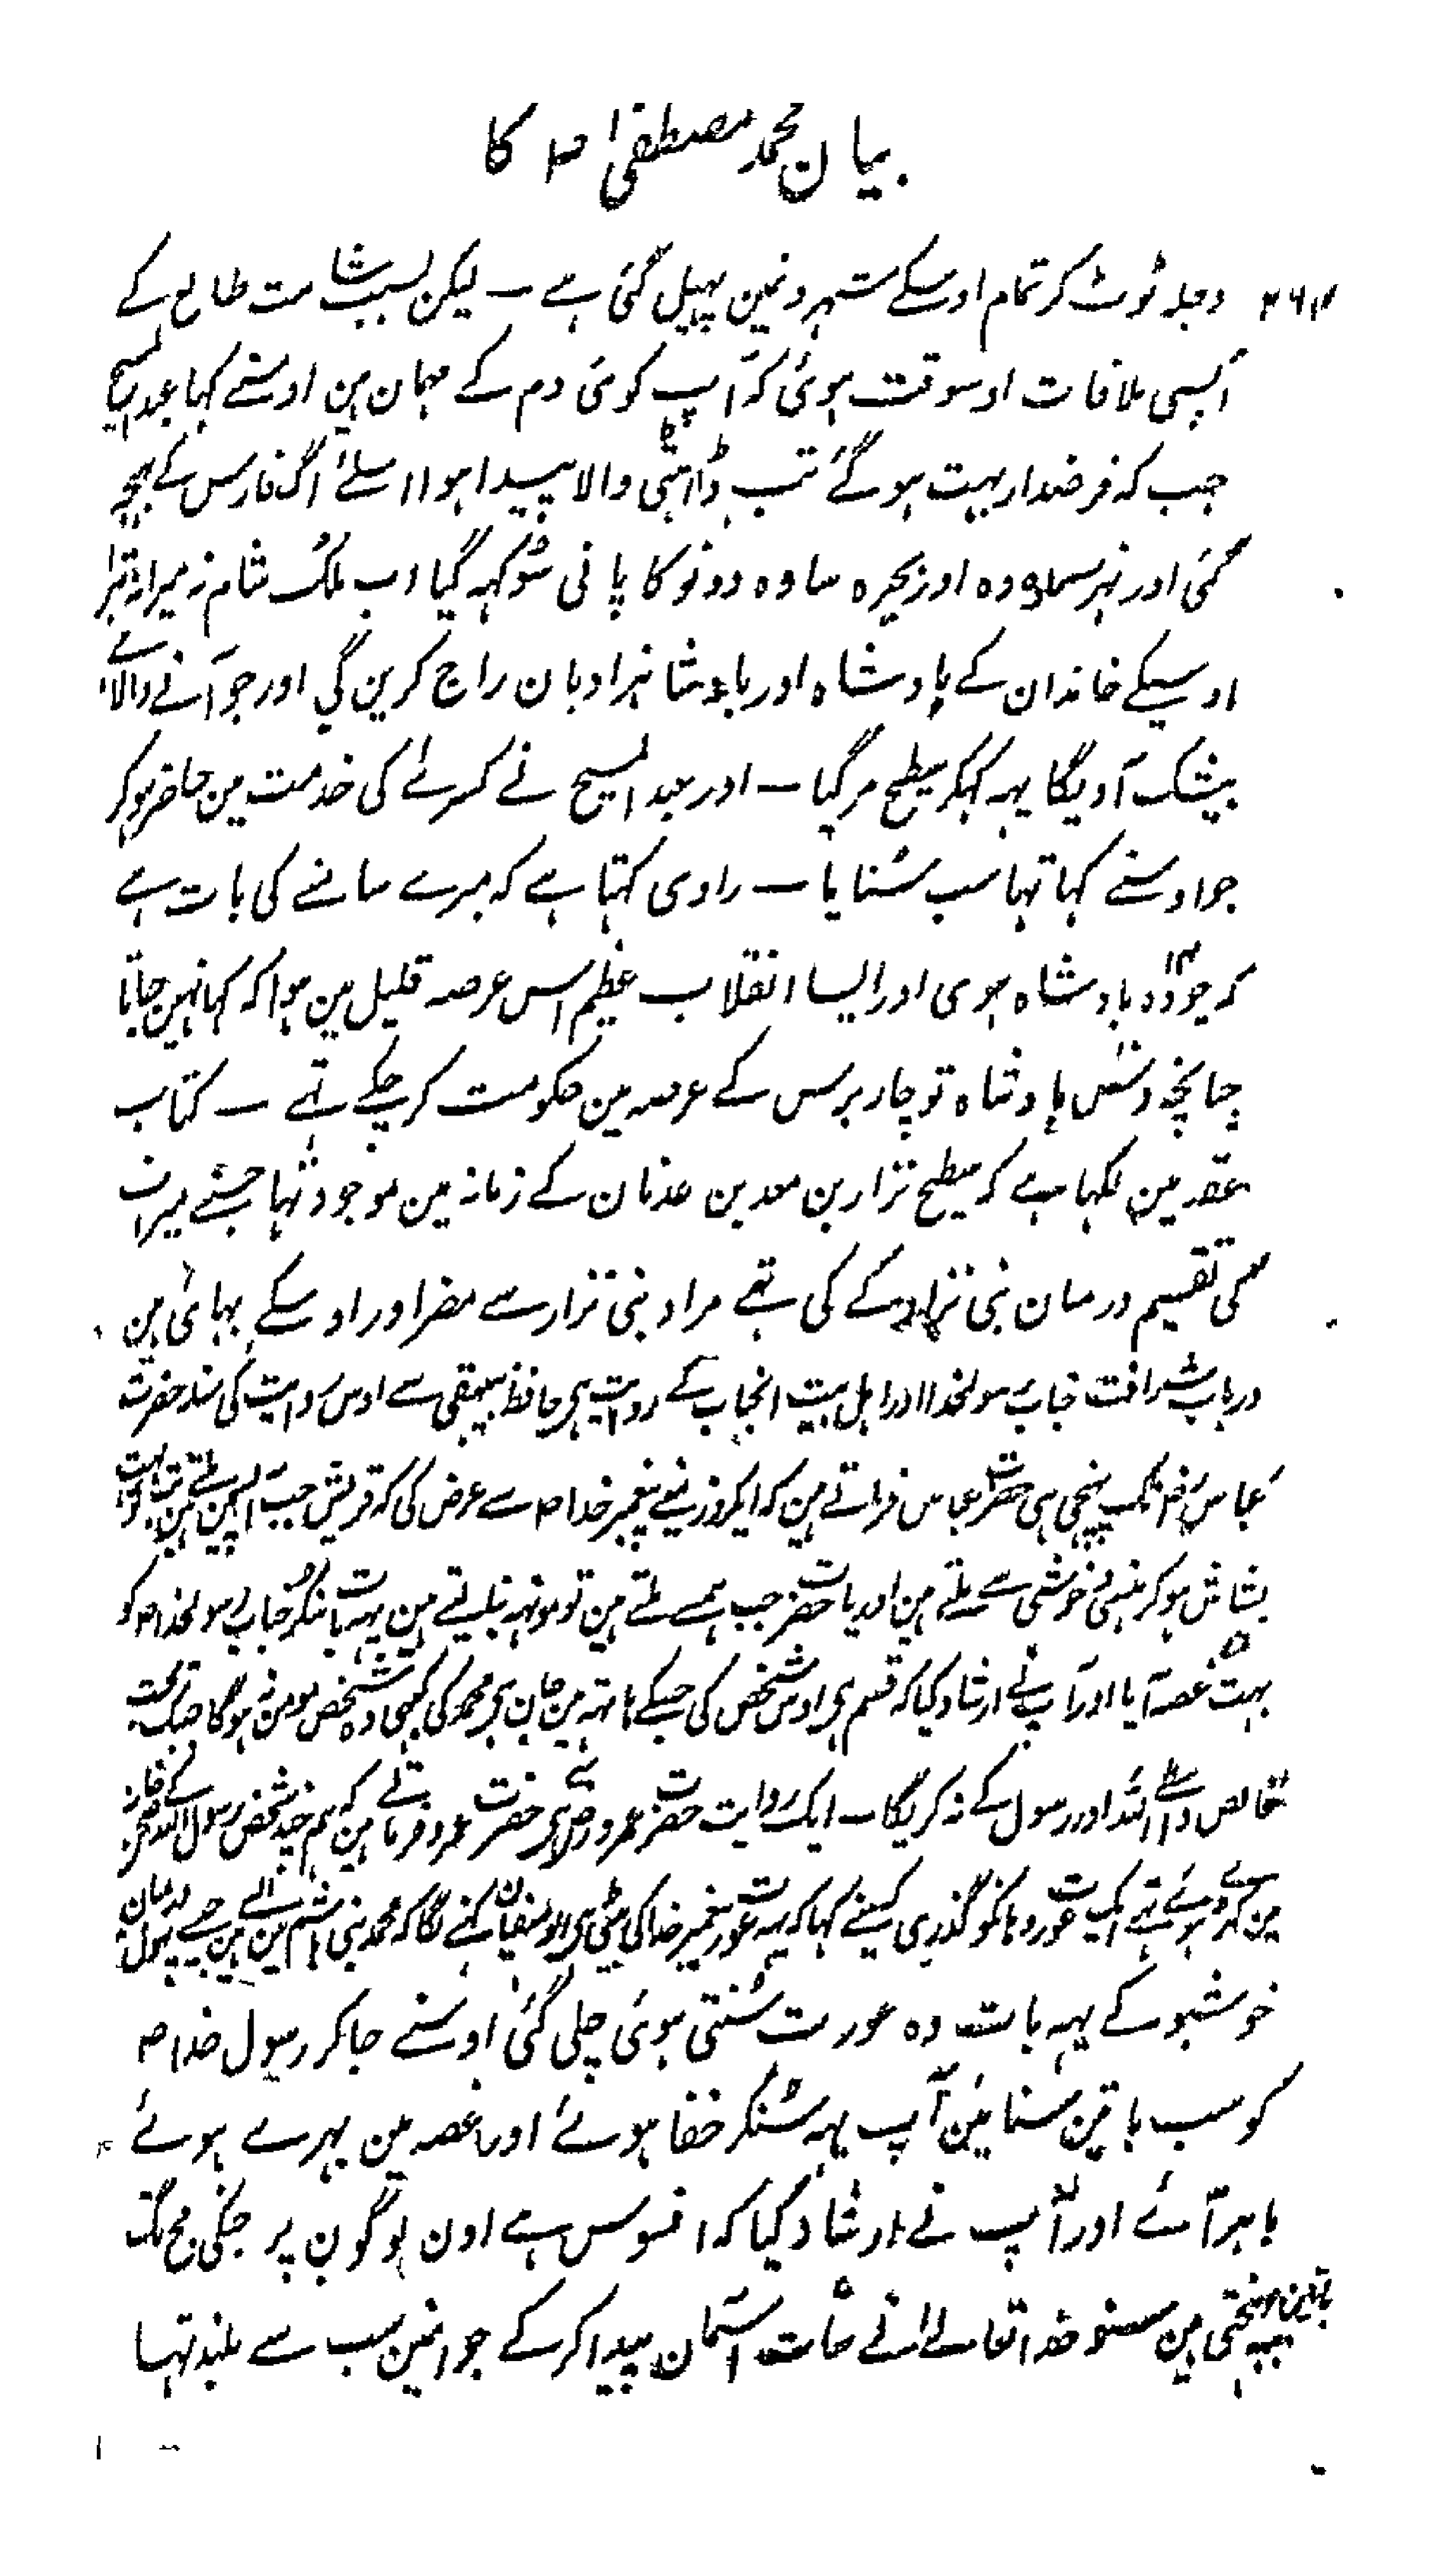 بیان محمد مصطفیٰ ص کا
۲۶۴ دجلہ ٹوٹ کر تمام اوسکے شہرونمین پہیل گئی ہے ــ لیکن بسبب شامت طالع کے
آپسی ملاقات اوسوقت ہوئی کہ آپ کوئی دم کے مہمان ہین اوسنے کہا عبد المسیح
جب کہ قرضدار بہت ہوگئے تب ڈانٹی والا پیدا ہوا اسلئے آگ فارس کے بجھ
گئی اور نہر سماوہ اور بحیرہ ساوہ دونو کا پانی سُوکہہ گیا اب ملک شام نہ میرا نہ تیرا
اوسیکے خاندان کے بادشاہ اور بادشاہزادیان راج کرین گی اور جو آنے والا ہے
بیشک آویگا یہہ کہکر سطیح مر گیا ــ اور عبد المسیح نے کسرےٰ کی خدمت مین حاضر ہوکر
جو اوسنے کہا تہا سب سُنایا ــ راوی کہتا ہے کہ میرے سامنے کی بات ہے
کہ چودہ ۱۴ بادشاہ ہوی اور ایسا انقلاب عظیم اس عرصہ قلیل مین ہوا کہ کہا نہین جاتا
چنانچہ دسّ بادشاہ تو چار برس کے عرصہ مین حکومت کر چکے تہے ــ کتاب
عقد مین لکہا ہے کہ سطیح نزار بن معد بن عدنان کے زمانہ مین موجود تہا جسنے میراث
کی تقسیم درمان بنی نزار کے کی تہے مراد بنی نزار سے مضر اور اوسکے بہائی ہین
درباب شرافت جناب رسولخدا اور اہل بیت انجناب کے روایت ہی حافظ بیہقی سے اوس روایت کی سند حضرت
عباس رض تک پہنچی ہی حضرت عباس فرماتے ہین کہ ایکروز مینے پیغمبر خدا ص سے عرض کی کہ قریش جب آپسمین ملتے ہین تو بہت
بشاش ہو کر ہنسی خوشی سے ملتے ہین اور یا حضرت جب ہمسے ملتے ہین تو مونہہ بنا لیتے ہین یہہ بات سنکر جناب رسولخدا ص کو
بہت غصہ آیا اور آپ نے ارشاد کیا کہ قسم ہی اوس شخص کی جسکے ہاتہہ مین جان ہی محمد کی کبہی وہ شخص مومن نہوگا جبتک محبت
خالص واسطے اللہ اور رسول کے نہ کریگا ــ ایک روایت حضرت عمر رض سے ہی حضرت عمر فرماتے ہین کہ ہم چند شخص رسول اللہ کے
مین کہڑے ہوئے تہے ایک عورت وہانکو گذری کسینے کہا کہ یہہ عورت پیغمبر خدا کی بیٹی ہی ابوسفیان کہنے لگا کہ محمد بنی ہاشم مین ایسے ہین جیسے پہول درمیان
خوشبو کے یہہ بات وہ عورت سُنتی ہوئی چلی گئی اوسنے جا کر رسول خدا ص
کو سب باتین سنائین آپ یہہ سُنکر خفا ہوئے اور غصہ مین بہرے ہوئے
باہر آئے اور آپ نے ارشاد کیا کہ افسوس ہے اون لوگون پر جنکی مجھ تک
باتین پہنچتی ہین سنو خدا تعالےٰ نے سات آسمان پیدا کرکے جو انمین سب سے بلند تہا